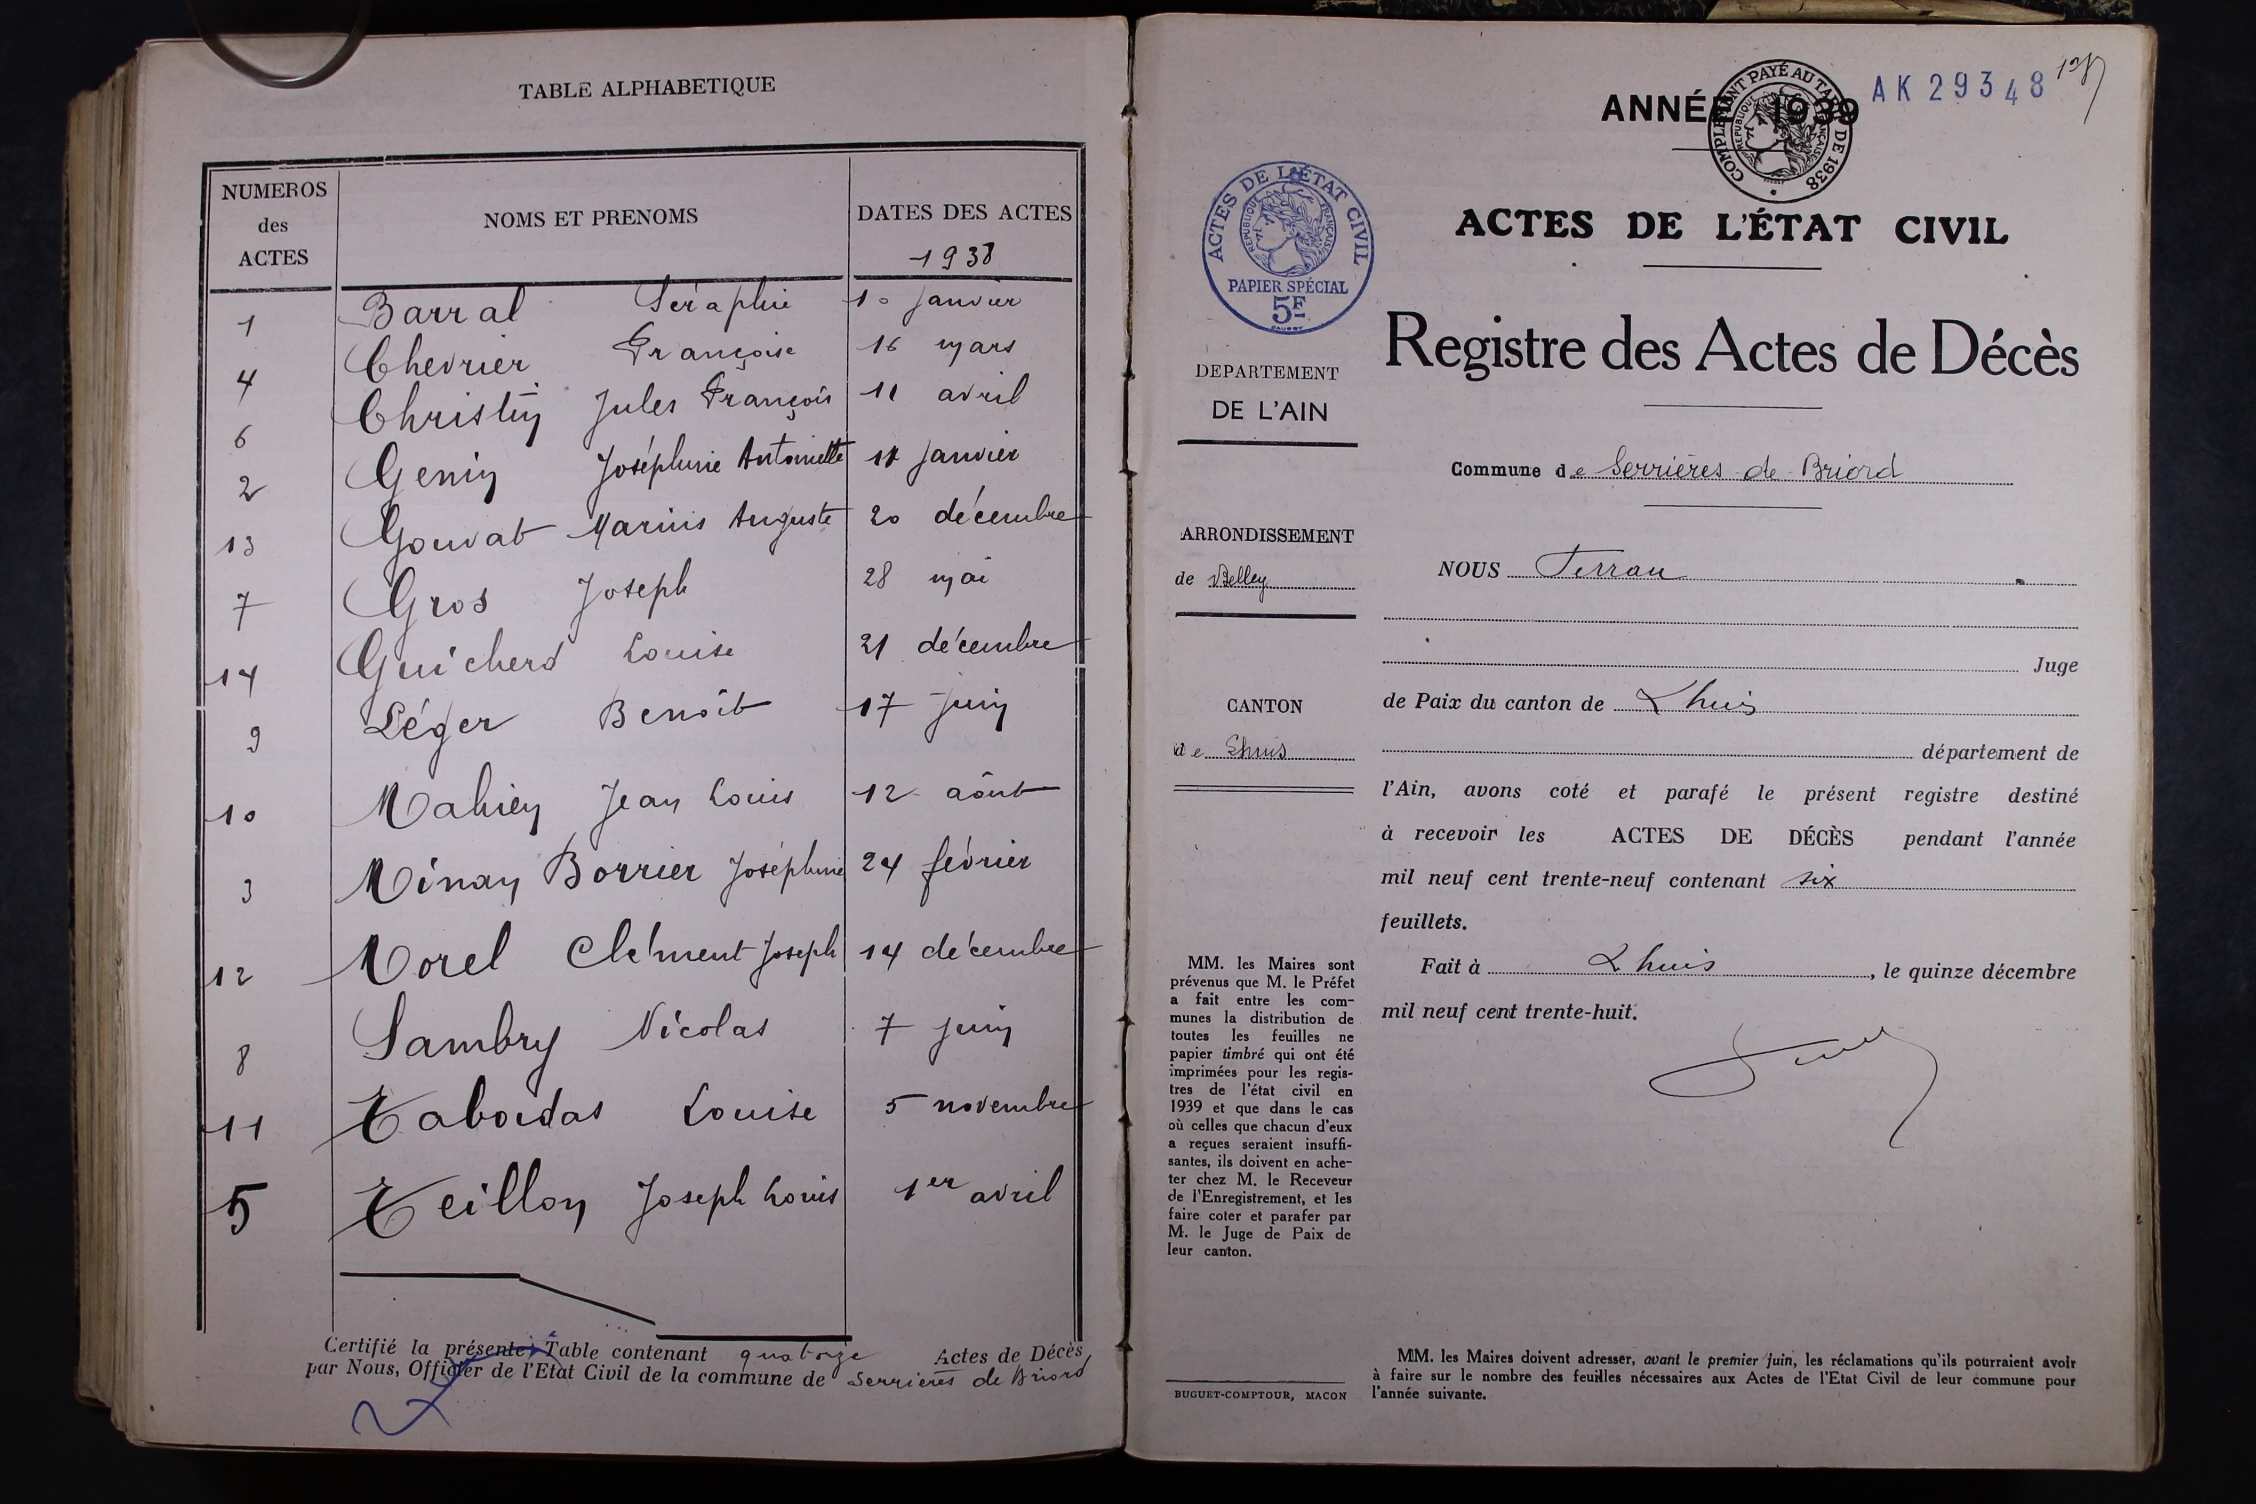 TABLE ALPHABETIQUE
NUMEROS des ACTES
NOMS ET PRENOMS
DATES DES ACTES
1938
1 Barral Séraphie 10 janvier
4 Chevrier Françoise 16 mars
6 Christin Jules François 11 avril
2 Genin Joséphine Antoinette janvier
13 Gouvat Marius Auguste 20 décembre
7 Gros Joseph 28 mai
14 Guicherd Louise 21 décembre
9 Léger Benoît 17 juin
10 Mahien Jean Louis 12 août
3 Minay Borrier Joséphine 24 février
12 Morel Clément Joseph 14 décembre
8 Sambry Nicolas 7 juin
11 Tabordas Louise 5 novembre
5 Teillon Joseph Louis 1er avril
Certifié la présente Table contenant quatorze Actes de Décès,
par Nous, Officier de l'Etat Civil de la commune de Serrières de Briord
ANNÉE 1939
AK 29348
COMPLÉMENT PAYÉ AU TARIF DE 1938
RÉPUBLIQUE FRANÇAISE
ACTES DE L'ÉTAT CIVIL
RÉPUBLIQUE FRANÇAISE
PAPIER SPÉCIAL
5F
ACTES DE L'ÉTAT CIVIL
Registre des Actes de Décès
DEPARTEMENT
DE L'AIN
Commune de Serrières de Briord
ARRONDISSEMENT
de Belley
CANTON
de Lhuis
NOUS Ferran
Juge
de Paix du canton de Lhuis
département de
l'Ain, avons coté et parafé le présent registre destiné
à recevoir les ACTES DE DÉCÈS pendant l'année
mil neuf cent trente-neuf contenant six
feuillets.
Fait à Lhuis, le quinze décembre
mil neuf cent trente-huit.
MM. les Maires sont
prévenus que M. le Préfet
a fait entre les com-
munes la distribution de
toutes les feuilles ne
papier timbré qui ont été
imprimées pour les regis-
tres de l'état civil en
1939 et que dans le cas
où celles que chacun d'eux
a reçues seraient insuffi-
santes, ils doivent en ache-
ter chez M. le Receveur
de l'Enregistrement, et les
faire coter et parafer par
M. le Juge de Paix de
leur canton.
BUGUET-COMPTOUR, MACON
MM. les Maires doivent adresser, avant le premier juin, les réclamations qu'ils pourraient avoir
à faire sur le nombre des feuilles nécessaires aux Actes de l'Etat Civil de leur commune pour
l'année suivante.